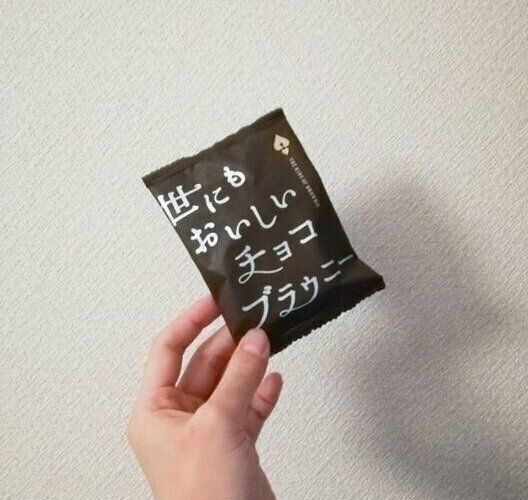 世にも
おいしい
チョコ
ブラウニー